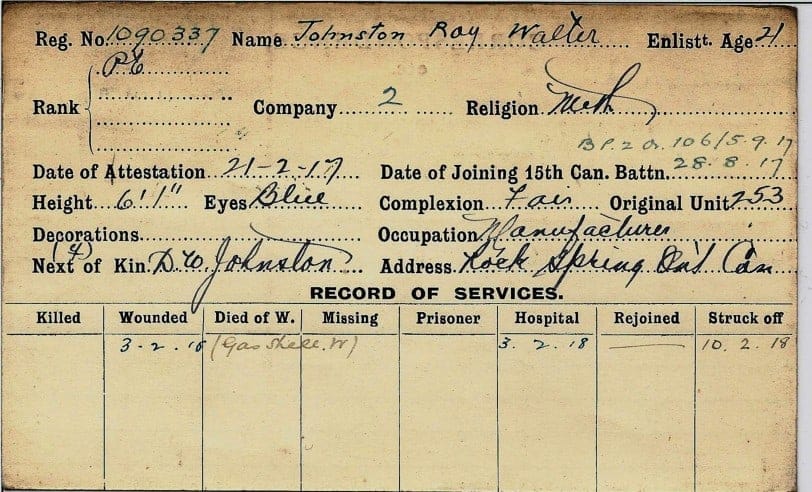 Reg. No. 1090337 Name Johnston Roy Walter Enlistt. Age 21
Pte
Rank Company 2 Religion Meth
B P. 2 Or. 106/5.9.17
Date of Attestation 21-2-17 Date of Joining 15th Can. Battn. 28.8.17
Height 6'1" Eyes Blue Complexion Fair Original Unit 253
Decorations Occupation Manufacturer
(4)
Next of Kin. D. W. Johnston Address Rock Spring Ont Can
RECORD OF SERVICES.
Killed Wounded Died of W. Missing Prisoner Hospital Rejoined Struck off
3.2.18 (Gas Shell. W) 3.2.18 10.2.18